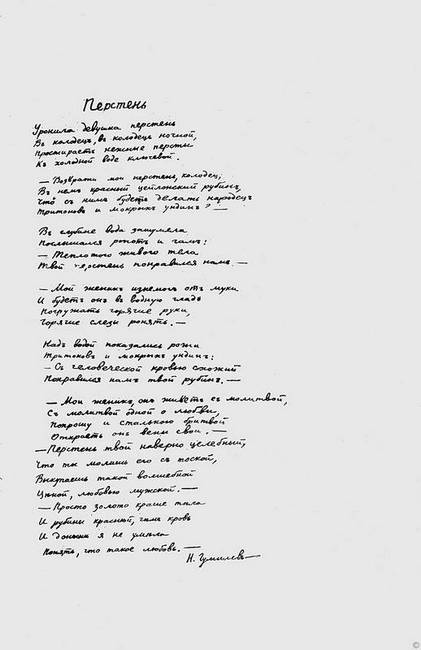 Перстень
Уронила девушка перстень
Въ колодецъ, въ колодецъ ночной,
Простираетъ нежные персты
Къ холодной воде ключевой.
— Возврати мой перстень, колодец,
Въ немъ красный цейлонский рубинъ,
Что съ нимъ будетъ делать народецъ
Тритоновъ и мокрыхъ ундинъ? —
Въ глубине вода зашумела
Послышался ропотъ и гамъ:
— Теплотою живого тела
Твой перстень понравился намъ. —
— Мой женихъ изнемогъ отъ муки
И будетъ онъ въ водную гладь
Погружать горячие руки,
Горячие слезы ронять. —
Надъ водой показались рожи
Тритоновъ и мокрыхъ ундинъ:
— Съ человеческой кровью схожий
Понравился намъ твой рубинъ. —
— Мой женихъ, онъ живетъ съ молитвой,
Съ молитвой одной о любви,
Попрошу и стальною бритвой
Откроетъ онъ вены свои. —
— Перстень твой наверно целебный,
Что ты молишь его съ тоской,
Выкупаешь такой волшебной
Ценой, любовью мужской. —
— Просто золото краше тела
И рубины красный, чемъ кровь
И доныне я не умела
Понять, что такое любовь. —
Н. Гумилевъ
©